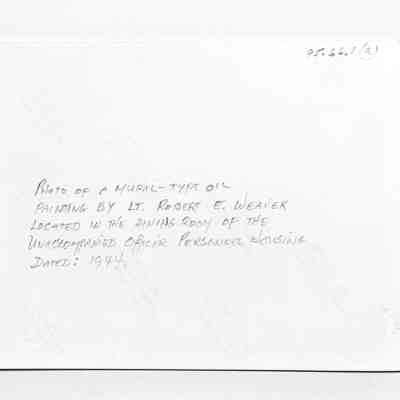 95.66.1 (a)
PHOTO OF A MURAL-TYPE OIL
PAINTING BY LT. ROBERT E. WEAVER
LOCATED IN THE DINING ROOM OF THE
UNACCOMPANIED OFFICER PERSONNEL HOUSING
DATED: 1944